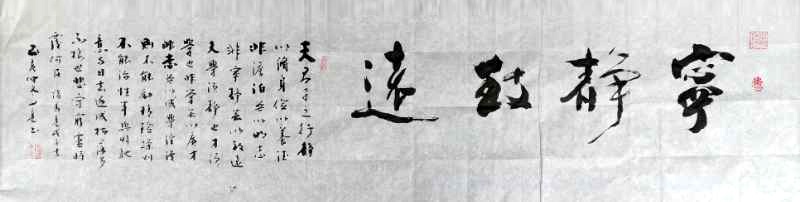 寧靜致遠
夫君子之行靜
以脩身儉以養德
非澹泊無以明志
非寧靜無以致遠
夫學須靜也才須
學也非學無以廣才
非志無以成學淫慢
則不能勵精險躁則
不能治性年與時馳
意與日去遂成枯落多
不接世悲守窮廬將
復何及諸葛亮